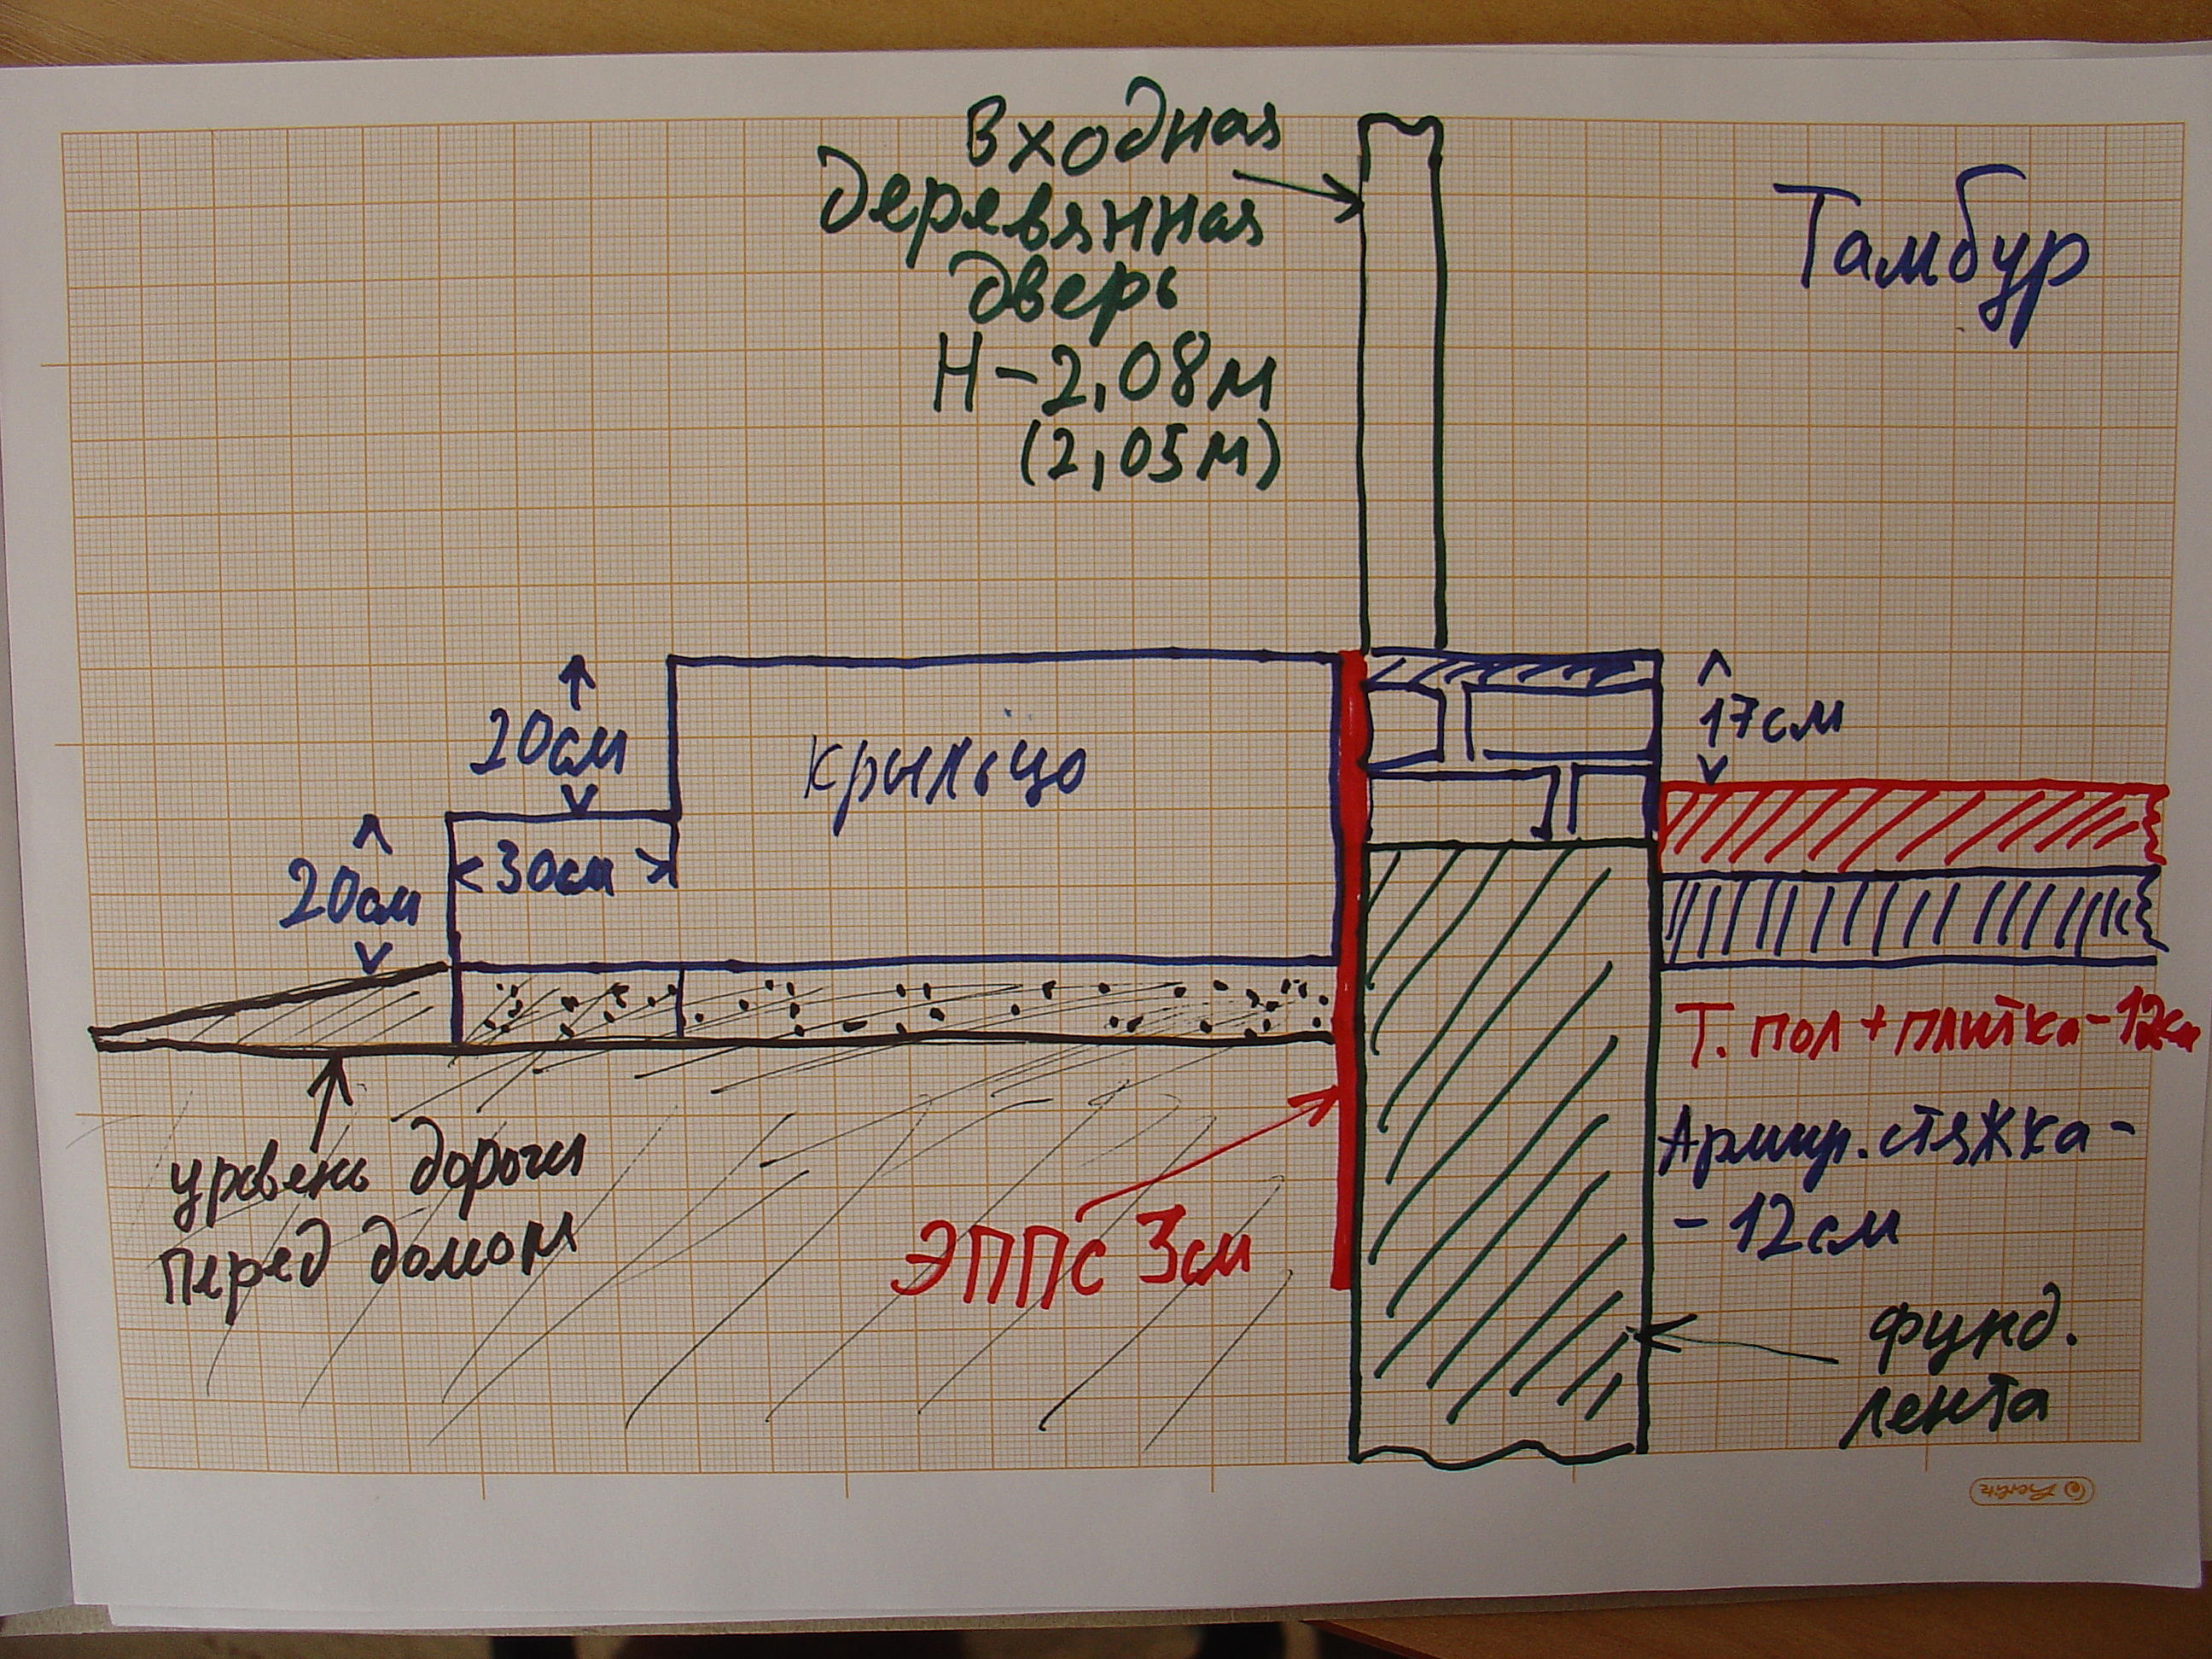 Входная
деревянная
дверь
Н-2,08м
(2,05м)
Тамбур
20см
крыльцо
17см
20см
30см
Т. пол + плитка - 12см
уровень дороги
перед домом
ЭППС 3см
Армир. стяжка -
- 12см
фунд.
лента